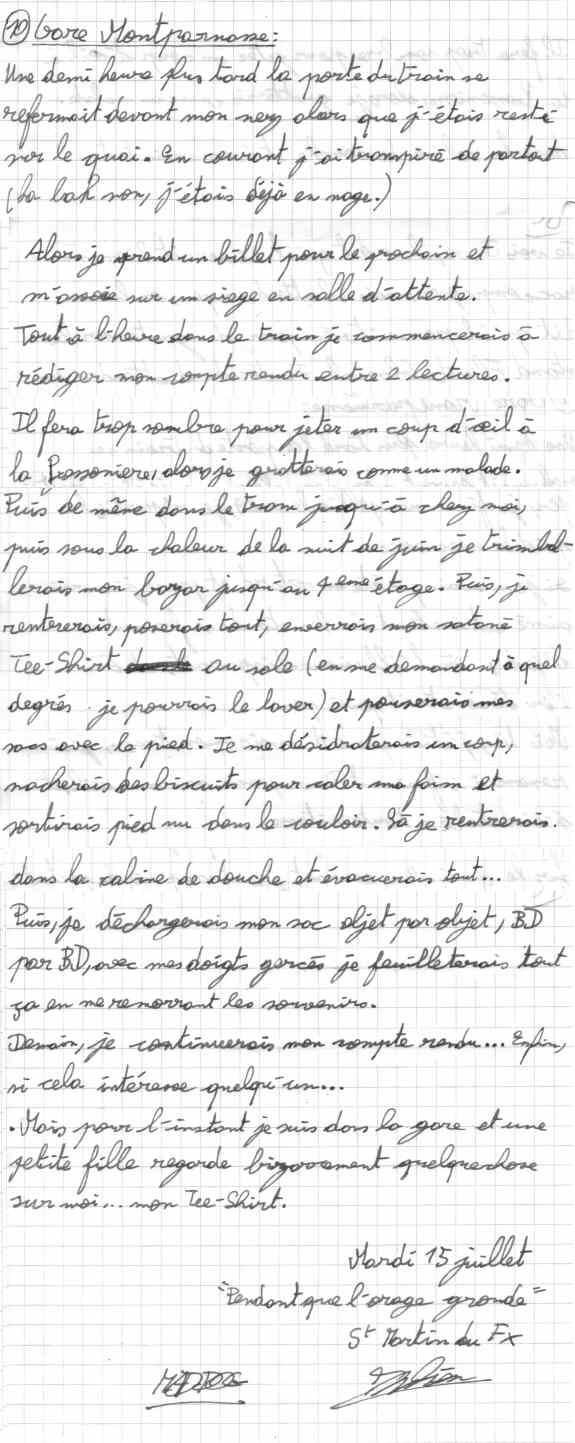 10 Gare Montparnasse:
Une demi heure plus tard la porte du train se
refermait devant mon nez alors que j'étais resté
sur le quai. En courant j'ai transpiré de partout
(ha bah non, j'étais déjà en nage.)
Alors je prend un billet pour le prochain et
m'assoie sur un siege en salle d'attente.
Tout à l'heure dans le train je commencerais à
rédiger mon compte rendu entre 2 lectures.
Il fera trop sombre pour jeter un coup d'œil à
la Possonniere, alors je gratterais comme un malade.
Puis de même dans le tram jusqu'à chez moi,
puis sous la chaleur de la nuit de juin je trimbal-
lerais mon bazar jusqu'au 4eme étage. Puis, je
rentrerais, poserais tout, enverrais mon satané
Tee-Shirt au sale (en me demandant à quel
degrés je pourrais le laver) et pousserais mes
sacs avec le pied. Je me désidraterais un coup,
macherais des biscuits pour caler ma faim et
sortirais pied nu dans le couloir. Là je rentrerais.
dans la cabine de douche et évacuerais tout...
Puis, je déchargerais mon sac objet par objet, BD
par BD, avec mes doigts gercés je feuilleterais tout
ça en me remorrant les souvenirs.
Demain, je continuerais mon compte rendu... Enfin,
si cela intéresse quelqu'un...
.Mais pour l'instant je suis dans la gare et une
petite fille regarde bizarrement quelquechose
sur moi... mon Tee-Shirt.
Mardi 15 juillet
"Pendant que l'orage gronde"
St Martin du Fx